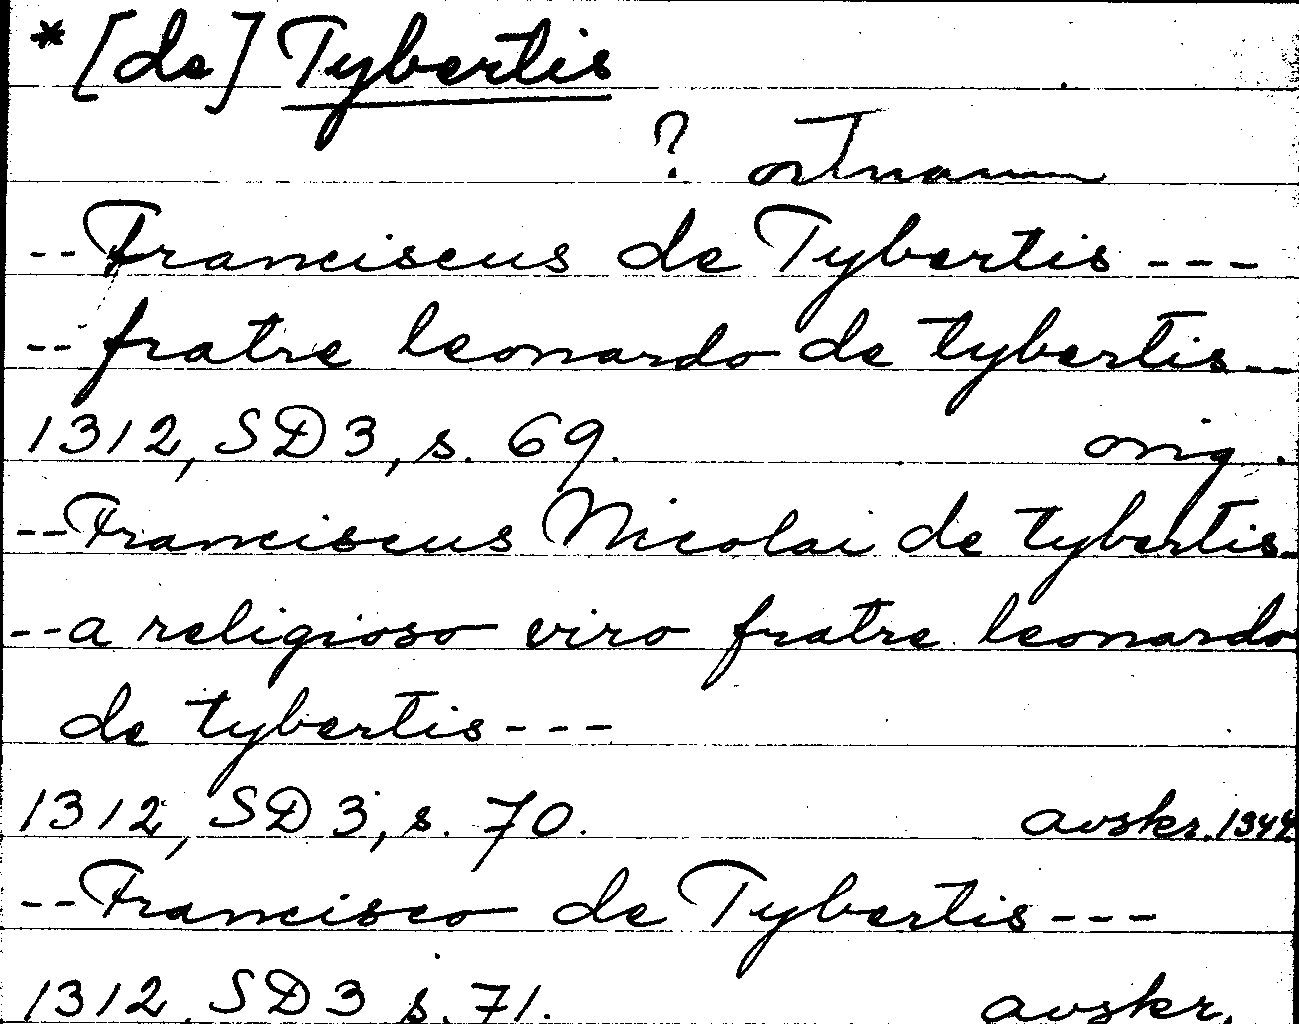 * [de] Tybertis
? ortnamn
-- Franciscus de Tybertis ---
-- fratre leonardo de tybertis --
1312, SD 3, s. 69. orig.
-- Franciscus Nicolai de tybertis -
-- a religioso viro fratre leonardo
de tybertis ---
1312, SD 3, s. 70. avskr. 1344
-- Francisco de Tybertis ---
1312, SD 3 s. 71. avskr.